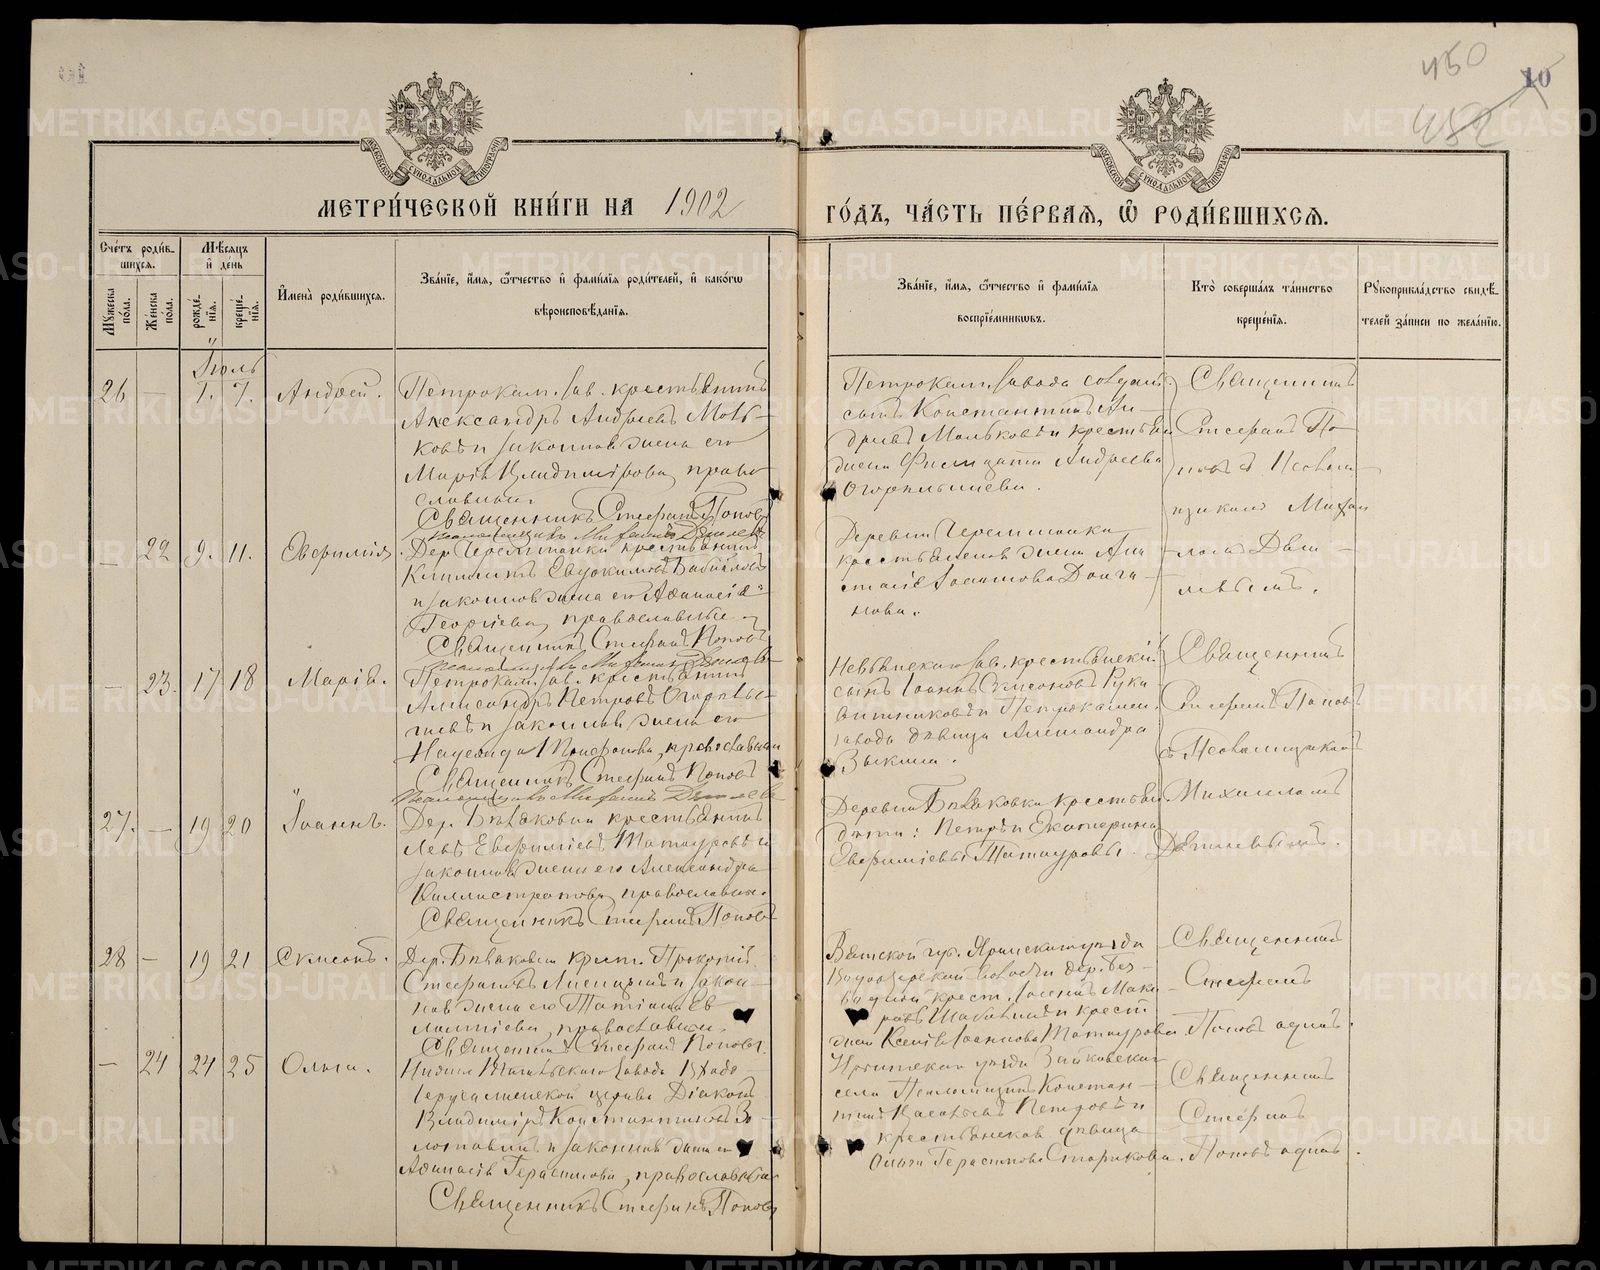 10
450
452
10
МЕТРИ́ЧЕСКОЙ КНИ́ГИ НА 1902
ГО́ДЪ, ЧА́СТЬ ПЕ́РВАѦ, Ѽ РОДИ́ВШИХСѦ.
Сче́тъ роди́в-
шихсѧ.
Мѣ́сѧцъ
и҆ де́нь
Мꙋ́жеска
по́ла.
Же́нска
по́ла.
рожде́-
нїѧ.
креще́-
нїѧ.
И҆мена̀ роди́вшихсѧ.
Зва́нїе, и҆́мѧ, ѻ҆́тчество и҆ фами́лїѧ роди́телей, и҆ како́гѡ
вѣроисповѣ́данїѧ.
Зва́нїе, и҆́мѧ, ѻ҆́тчество и҆ фами́лїѧ
воспрїе́мникѡвъ.
Кто̀ соверша́лъ та́инство
креще́нїѧ.
Рꙋкоприкла́дство свидѣ́-
телей за́писи по жела́нїю.
Іюль
26 — 1. 7. Андрей.
Петрокам. зав. крестьянинъ
Александръ Андреевъ Моль-
ковъ и законная жена его
Марія Владимірова, право
славные.
Священникъ Стефанъ Поповъ
Псаломщикъ Михаилъ Дягилевъ
Петрокам. завода солдат.
сынъ Константинъ Ан-
дреевъ Мольковъ и крестьян
жена Андреева
Огорельцева.
Священникъ
Стефанъ По-
повъ съ Псалом-
щикомъ Михаи
ломъ Дяги-
левымъ.
— 22 9. 11. Евфимія.
Дер. Черемшанки крестьянинъ
Климентъ Евдокимовъ
и законная жена его Афанасія
Георгіева, православные.
Священникъ Стефанъ Поповъ
Псаломщикъ Михаилъ Дягилевъ
Деревни Черемшанки
крестьянская жена Ана
стасія Іоаннова Долга-
нова.
— 23. 17 18 Марія.
Петрокам. зав. крестьянинъ
Александръ Петровъ Огорель-
цевъ и законная жена его
Надежда, православные
Священникъ Стефанъ Поповъ
Псаломщикъ Михаилъ Дягилевъ
Невьянскаго зав. крестьянскій
сынъ Іоаннъ Симеоновъ Рука-
вишниковъ и Петрокамен.
завода дѣвица Александра
Зыкина.
Священникъ
Стефанъ Поповъ
съ Псаломщикомъ
Михаиломъ
Дягилевымъ.
27. — 19 20 Іоаннъ.
Дер. Бѣляковки крестьянинъ
Левъ Евфиміевъ Татауровъ и
законная жена его Александра
Каллистратова, православн.
Священникъ Стефанъ Поповъ
Деревни Бѣляковки крестьян.
дѣти: Петръ и Екатерина
Евфиміевы Татауровы.
28 — 19 21 Симеонъ.
Дер. Бѣляковки крест. Прокопій
Стефановъ и закон-
ная жена его Татіана Ев-
лампіева, православные.
Священникъ Стефанъ Поповъ.
Вятской губ. Яранскаго уѣзда
волости дер.
крест. Іоаннъ Мака-
ровъ и крест.
жена Ксенія Іоаннова Татаурова
Священникъ
Стефанъ
Поповъ одинъ.
— 24 24 25 Ольга.
Нижне Тагильскаго завода Входо
Іерусалимской церкви Діаконъ
Владиміръ Константиновъ Зо-
лотавинъ и законная жена его
Афанасія Герасимова, православные
Священникъ Стефанъ Поповъ
Ирбитскаго уѣзда Зайковскаго
села Псаломщикъ Констан-
тинъ Петровъ и
крестьянская дѣвица
Ольга Герасимова Старикова.
Священникъ
Стефанъ
Поповъ одинъ.